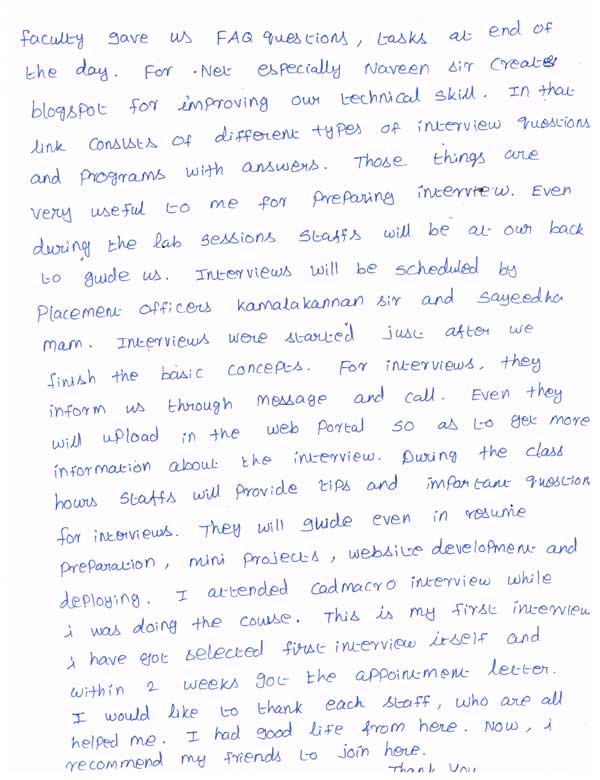 faculty gave us FAQ questions, tasks at end of
the day. For .Net especially Naveen sir creates
blogspot for improving our technical skill. In that
link consists of different types of interview questions
and programs with answers. Those things are
very useful to me for preparing interview. Even
during the lab sessions staffs will be at our back
to guide us. Interviews will be scheduled by
Placement officers kamalakannan sir and sayeedha
mam. Interviews were started just after we
finish the basic concepts. For interviews, they
inform us through message and call. Even they
will upload in the web portal so as to get more
information about the interview. During the class
hours staffs will provide tips and important question
for interviews. They will guide even in resume
preparation, mini projects, website development and
deploying. I attended cadmacro interview while
i was doing the course. This is my first interview
i have got selected first interview itself and
within 2 weeks got the appointment letter.
I would like to thank each staff, who are all
helped me. I had good life from here. Now, i
recommend my friends to join here.
Thank You